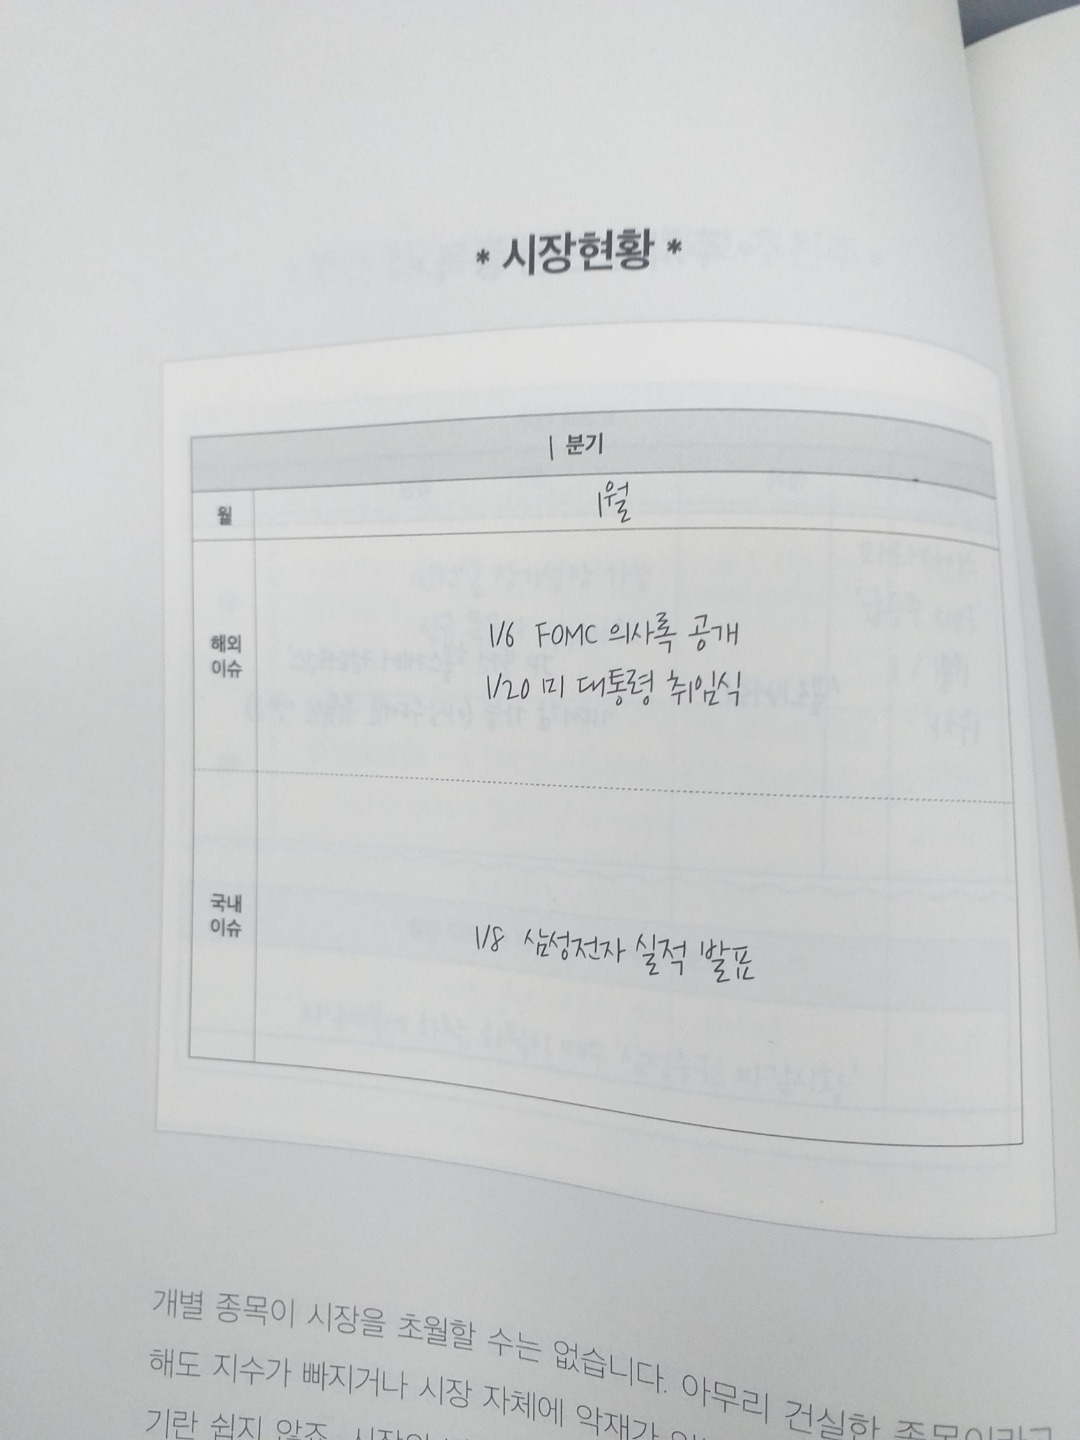 * 시장현황 *
1 분기
월 1월
해외
이슈
1/6 FOMC 의사록 공개
1/20 미 대통령 취임식
국내
이슈
1/8 삼성전자 실적 발표
개별 종목이 시장을 초월할 수는 없습니다. 아무리 건실한 종목이라고
해도 지수가 빠지거나 시장 자체에 악재가
기란 쉽지 않죠.